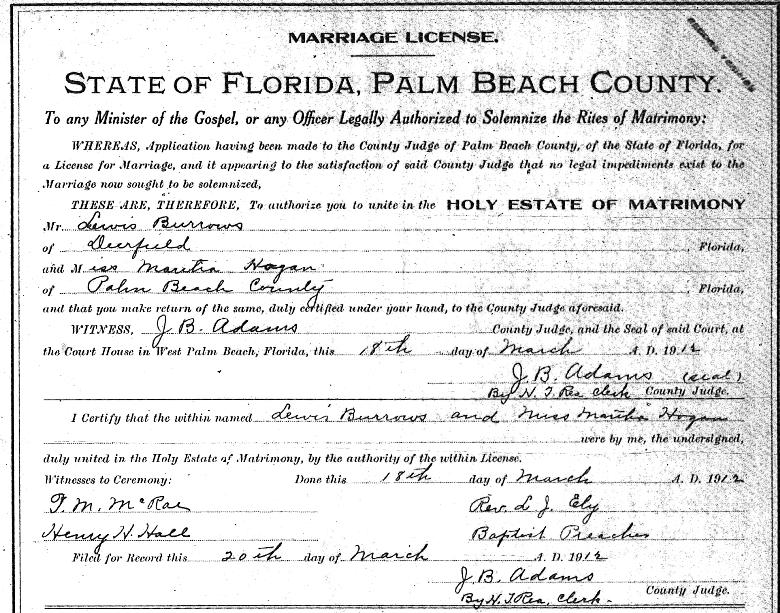 MARRIAGE LICENSE.
STATE OF FLORIDA, PALM BEACH COUNTY.
To any Minister of the Gospel, or any Officer Legally Authorized to Solemnize the Rites of Matrimony:
WHEREAS, Application having been made to the County Judge of Palm Beach County, of the State of Florida, for
a License for Marriage, and it appearing to the satisfaction of said County Judge that no legal impediments exist to the
Marriage now sought to be solemnized,
THESE ARE, THEREFORE, To authorize you to unite in the HOLY ESTATE OF MATRIMONY
Mr. Lewis Burrows
of Deerfield , Florida,
and Miss Martha Hogan
of Palm Beach County , Florida,
and that you make return of the same, duly certified under your hand, to the County Judge aforesaid.
WITNESS, J. B. Adams County Judge, and the Seal of said Court, at
the Court House in West Palm Beach, Florida, this 18th day of March A. D. 1912
J. B. Adams (seal)
By H. J. Rea Clerk County Judge.
I Certify that the within named Lewis Burrows and Miss Martha Hogan
were by me, the undersigned,
duly united in the Holy Estate of Matrimony, by the authority of the within License.
Witnesses to Ceremony: Done this 18th day of March A. D. 1912
T. M. McRae Rev. L. J. Ely
Henry H. Hall Baptist Preacher
Filed for Record this 20th day of March A. D. 1912
J. B. Adams
By H. J. Rea, Clerk. County Judge.